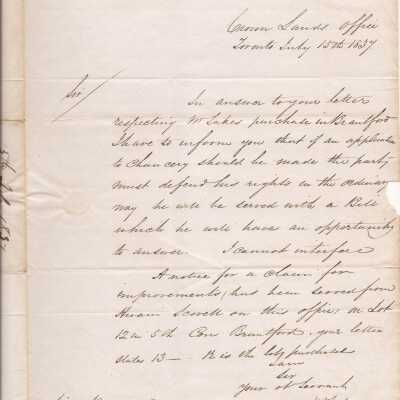 Crown Lands Office
Toronto July 15th 1837
Sir/
In answer to your letter
respecting Mr Lakes purchase in Brantford
I have to inform you that if an application
to Chancery should be made the party
must defend his rights in the ordinary
way he will be served with a Bill
which he will have an opportunity
to answer. I cannot interfere
A notice for a claim for
improvements, has been served from
Hiram Scovell on this office; on Lot
12 in 5th Con Brantford. your letter
states 13 — is the purchased
I am
Sir
Your ob Servant